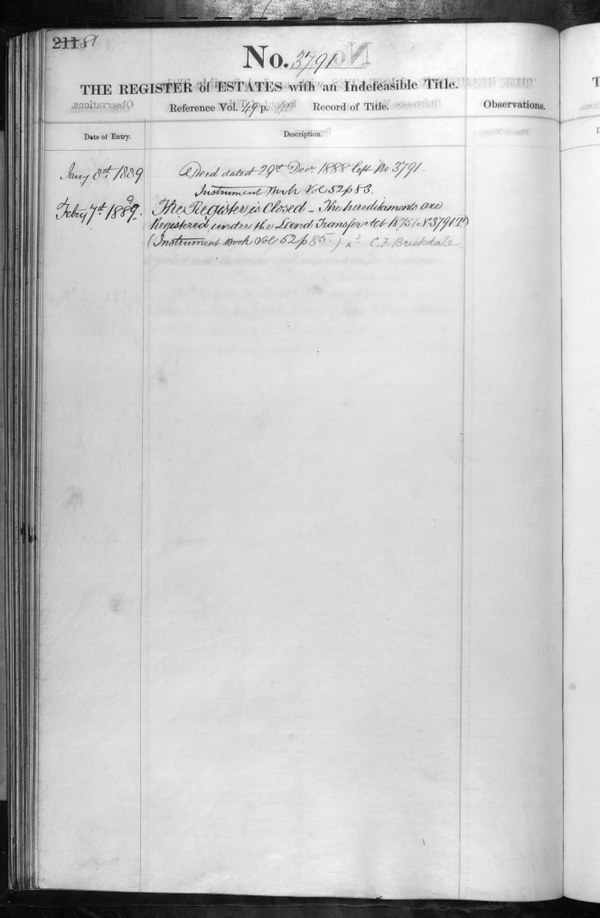 211 81
No. 3791
THE REGISTER of ESTATES with an Indefeasible Title.
Reference Vol. 49 p. Record of Title.
Observations.
Date of Entry.
Description.
Jany 8th 1889
Deed dated 29th Decr 1888 Copt No 3791
Instrument Book Vol 52 p 83.
Feby 7th 1889
The Register is Closed - The hereditaments are
Registered under the Land Transfer Act 1875 (No 3791)
(Instrument Book Vol 52 p 85.) C. F. Brickdale